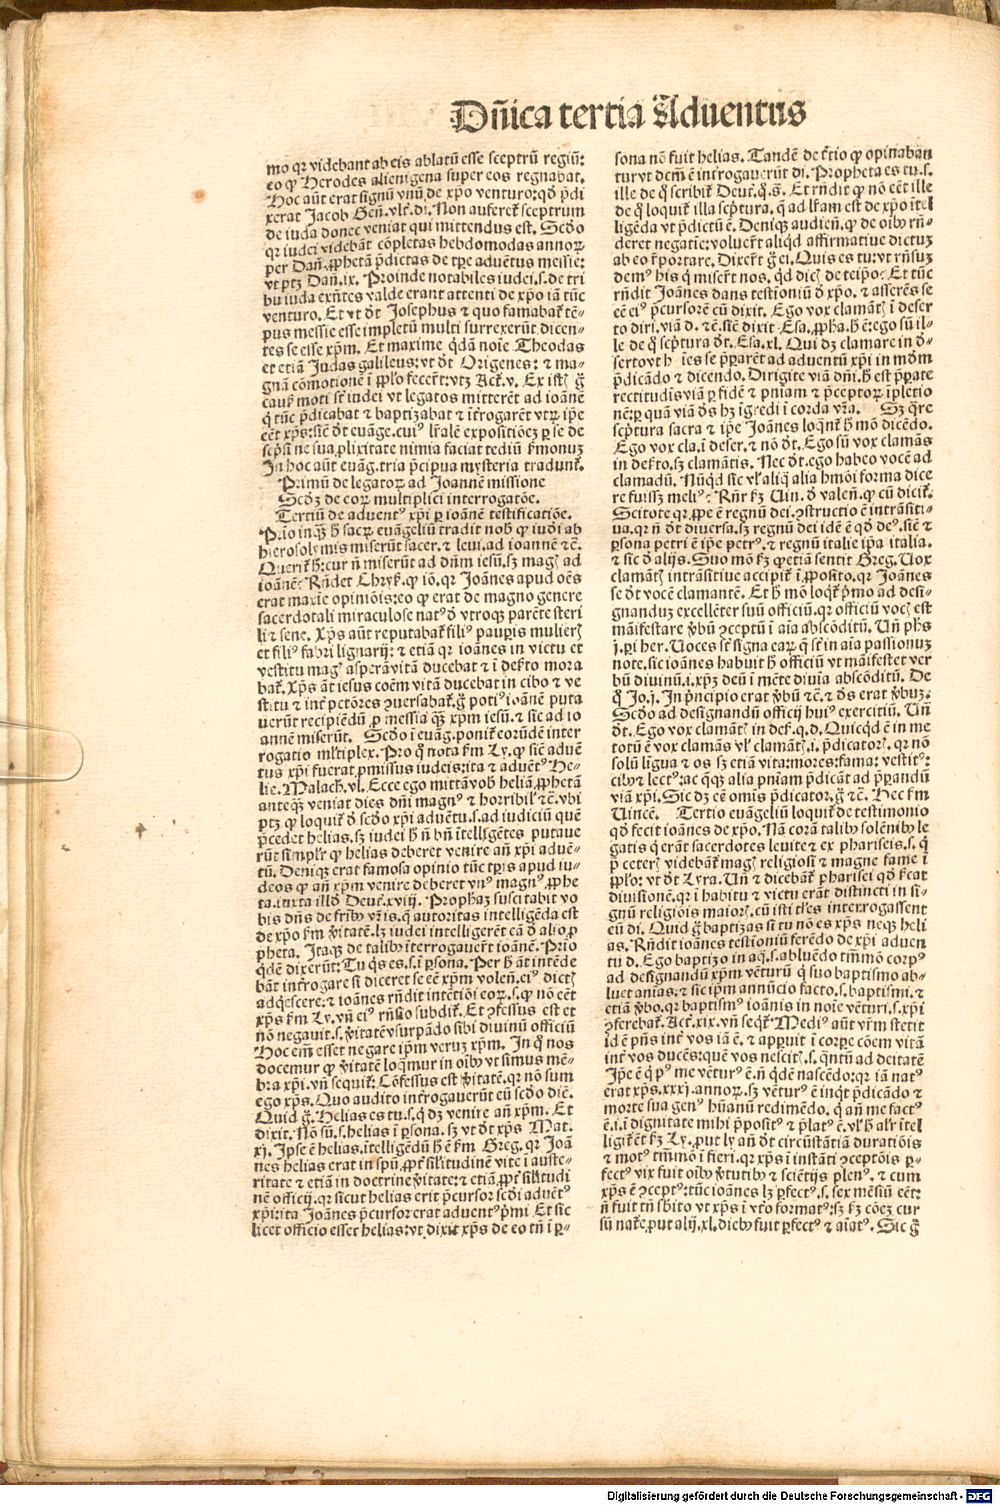 Dñica tertia Adventus
mo qꝛ videbant ab eis ablatū esse sceptrū regiū:
eo ꝙ Herodes alienigena super eos regnabat.
Hoc aūt erat signū vnū de xp̄o venturo: qd̄ p̄di
xerat Jacob Geñ. vlt̄. di. Non auferet̄ sceptrum
de iuda donec veniat qui mittendus est. Scd̄o
qꝛ iudei videbāt cōpletas hebdomodas annoꝝ
per Dañ. ꝓphetā p̄dictas de tp̄e adventus messie:
vt ptꝫ Dañ. ix. Proinde notabiles iudei .s. de tri
bu iuda exn̄tes valde erant attenti de xp̄o iā tūc
venturo. Et vt d̄t Josephus ⁊ quo famabat̄ tē-
pus messie esse impletū multi surrexerūt dicen-
tes se esse xp̄m. Et maxime q̄dā noīe Theodas
et etiā Judas galileus: vt d̄t Origenes: ⁊ ma-
gnā cōmotionē ī ꝓp̄lo fecer̄t: vtꝫ Act̄. v. Ex istꝭ ḡ
causꝭ moti st̄ iudei vt legatos mitterēt ad ioānē
q̄ tūc p̄dicabat ⁊ baptizabat ⁊ īt̄rogarēt vtꝝ ip̄e
eēt xp̄s: sic̄ d̄t euāge. cuiꝰ lr̄alē expositiōeꝫ ꝑ se de
scp̄si ne sua ꝓlixitate nimia faciat tediū ẜmonuꝫ
In hoc aūt euāg. tria p̄cipua mysteria tradunt̄.
Primū de legatoꝝ ad Joannē missione
Scd̄ꝫ de eoꝝ multiplici interrogatōe.
Tertiū de aduentꝰ xp̄i ꝑ ioānē testificatiōe.
P̄io inqꝫ h̄ sacꝝ euāgeliū tradit nob̄ ꝙ iud̄i ab
hierosolymis miserūt sacer. ⁊ leui. ad ioannē ⁊c̄.
Querit̄ h̄: cur n̄ miserūt ad dn̄m iesū. sꝫ magꝭ ad
ioānē: Rn̄det Chryẜ. ꝙ iō. qꝛ Joānes apud oēs
erat maxīe opiniōis: eo ꝙ erat de magno genere
sacerdotali miraculose natꝰ d̄ vtroqꝫ parēte steri
li ⁊ sene. Xp̄s aūt reputabat̄ filiꝰ pauꝑis mulierꝭ
et filiꝰ fabri lignarij: ⁊ etiā qꝛ ioānes in victu et
vestitu magꝭ asperā vitā ducebat ⁊ ī deẜto mora
bat̄. Xp̄s āt iesus coēm vitā ducebat in cibo ⁊ ve
stitu ⁊ int̄ pctōres ꝯuersabat̄. ḡ potiꝰ ioānē puta
uerūt recipiēdū ꝓ messia qꝫ xp̄m iesū. ⁊ sic̄ ad io
annē miserūt. Scd̄o ī euāg. ponit̄ eorūdē inter
rogatio mltiplex. Pro q̄ nota ẜm Ly. ꝙ sic̄ aduē
tus xp̄i fuerat ꝓmissus iudeis: ita ⁊ aduētꝰ He-
lie. Malach̄. vl. Ecce ego mittā vob̄ heliā ꝓphetā
anteqꝫ veniat dies dn̄i magnꝰ ⁊ horribilꝭ ⁊c̄. vbi
ptꝫ ꝙ loquit̄ d̄ scd̄o xp̄i aduētu .s. ad iudiciū quē
p̄cedet helias. sꝫ iudei h̄ n̄ bn̄ ītelligētes putaue
rūt simplr̄ ꝙ helias deberet venire añ xp̄i aduē-
tū. Deniqꝫ erat famosa opinio tūc tꝑis apud iu-
deos ꝙ añ xp̄m venire deberet vnꝰ magnꝰ ꝓphe
ta. iuxta illd̄ Deut̄. xviij. Prophāꝫ suscitabit vo
bis dn̄s de fr̄ibꝰ vr̄is. q̄ autoritas intelligēda est
de xp̄o ẜm v̄itatē. lꝫ iudei intelligerēt eā d̄ alio ꝓ
pheta. Itaqꝫ de talibꝰ īterrogauer̄t ioānē. Prīo
q̄dē dixerūt: Tu q̄s es .s. ī ꝑsona. Per h̄ āt intēde
bāt int̄rogare si diceret se eē xp̄m volen̄. eiꝰ dictꝭ
adq̄escere: ⁊ ioānes rn̄dit intētiōi eoꝝ. s. ꝙ nō eēt
xp̄s ẜm Ly. vn̄ eiꝰ rn̄sio subdit̄. Et ꝯfessus est et
nō negauit .s. v̄itatē vsurpādo sibi diuinū officiū
Hoc em̄ esset negare ip̄m veruꝫ xp̄m. In q̄ nos
docemur ꝙ v̄itatē loq̄mur in oībꝰ vt simus mē-
bra xp̄i. vn̄ sequit̄: Cōfessus est v̄itatē. qꝛ nō sum
ego xp̄s. Quo audito int̄rogauerūt eū scd̄o dīc̄.
Quid ḡ. Helias es tu .s. q̄ dꝫ venire añ xp̄m. Et
dixit. Nō sū .s. helias ī ꝑsona. sꝫ vt d̄t xp̄s Mat.
xj. Ip̄se ē helias. ītelligēdū h̄ ē ẜm Greg. qꝛ Joā
nes helias erat in spū ꝓpt̄ sil̄itudinē vite ī auste-
ritate ⁊ etiā in doctrine v̄itate: ⁊ etiā ꝓpt̄ sil̄itudi
nē officij. qꝛ sicut helias erit p̄cursor scd̄i aduētꝰ
xp̄i: ita Joānes p̄cursor erat aduentꝰ p̄mi Et sic
licet officio esset helias: vt dixit xp̄s de eo tn̄ ī ꝑ-
sona nō fuit helias. Tandē de t̄tio ꝙ opinaban
tur vt dem̄ ē int̄rogauerūt di. Propheta es tu .s.
ille de q̄ scribit̄ Deut̄. q̄. s̄. Et rn̄dit ꝙ nō eēt ille
de q̄ loquit̄ illa scp̄tura. q̄ ad lr̄am est de xp̄o ītel
ligēda vt p̄dictū ē. Deniqꝫ audien̄. ꝙ de oībꝰ rn̄-
deret negatīe: voluer̄t aliq̄d affirmatīve dictuꝫ
ab eo r̄portare. Dixer̄t ḡ ei. Quis es tu: vt rn̄suꝫ
demꝰ his q̄ miser̄t nos. q̄d dicꝭ de teip̄o: Et tūc
rn̄dit Joānes dans testioniū d̄ xp̄o. ⁊ asserēs se
eē eiꝰ p̄cursorē cū dixit. Ego vox clamātꝭ ī deser
to diri. viā d. ⁊c̄. sic̄ dixit Esa. ꝓpha. h̄ ē: ego sū il-
le de q̄ scp̄tura d̄t. Esa. xl. Qui dꝫ clamare in d̄-
serto vt h ies se p̄pararēt ad aduentū xp̄i in mōm
p̄dicādo ⁊ dicendo. Dirigite viā dn̄i. h̄ est p̄parate
rectitudīs viā ꝑ fidē ⁊ pn̄iam ⁊ p̄ceptoꝝ īpletio
nē: ꝑ quā viā d̄s hꝫ īgredi ī corda vr̄a. Sꝫ q̄re
scp̄tura sacra ⁊ ip̄e Joānes loqūt̄ h̄ mō dicēdo.
Ego vox cla. ī deser. ⁊ nō d̄t. Ego sū vox clamās
in deẜto. sꝫ clamātis. Nec d̄t. ego habeo vocē ad
clamadū. Nūqd̄ sic vl̄ aliq̄ alia hmōi forma dice
re fuissꝫ meliꝰ: Rn̄r ẜꝫ Uin. d̄ valen̄. ꝙ cū dicit̄.
Scitote qꝛ ꝓpe ē regnū dei. ꝯstructio ē intrāsiti-
ua. qꝛ n̄ d̄t diuersa. sꝫ regnū dei idē ē qd̄ deꝰ. sic̄ ⁊
ꝑsona petri ē ip̄e petrꝰ. ⁊ regnū italie ip̄a italia.
⁊ sic d̄ alijs. Suo mō ẜꝫ ꝙ etiā sentit Greg. Uox
clamātꝭ intrāsitiue accipit̄ ī ꝓposito. qꝛ Joānes
se d̄t vocē clamantē. Et h̄ mō loqt̄ p̄mo ad desi-
gnanduꝫ excellēter suū officiū. qꝛ officiū vocꝭ est
māifestare v̄bū ꝯceptū ī aīa abscōditū. Un̄ ph̄s
j. ꝑi her. Uoces st̄ signa eaꝝ q̄ st̄ in aīa passionuꝫ
note. sic ioānes habuit h̄ officiū vt māifestet ver
bū diuinū .i. xp̄ꝫ deū ī mēte diuīa abscōditū. De
q̄ Jo. j. In p̄ncipio erat v̄bū ⁊c̄. ⁊ d̄s erat v̄buꝫ.
Scd̄o ad designandū officij huiꝰ exercitiū. Un̄
d̄t. Ego vox clamātꝭ in deẜ. q. d. Quicqd̄ ē in me
totū ē vox clamās vl̄ clamātꝭ .i. p̄dicatorꝭ. qꝛ nō
solū līgua ⁊ os sꝫ etiā vita: mores: fama: vestitꝰ:
cibꝰ ⁊ lectꝰ: ac q̄qꝫ alia pn̄iam p̄dicāt ad p̄parandū
viā xp̄i. Sic dꝫ eē omīs p̄dicator. ḡ ⁊c̄. Hec ẜm
Uincē. Tertio euāgeliū loquit̄ de testimonio
qd̄ fecit ioānes de xp̄o. Nā corā talibꝰ solēnibꝰ le
gatis q̄ erāt sacerdotes leuite ⁊ ex phariseis .s. q̄
p̄ ceterꝭ videbāt̄ magꝭ religiosi ⁊ magne fame ī
ꝓp̄lo: vt d̄t Lyra. Un̄ ⁊ dicebāt̄ pharisei qd̄ ẜcat
diuisionē. qꝛ ī habitu ⁊ victu erāt distincti in si-
gnū religiōis maiorꝭ. cū isti t̄les interrogassent
eū di. Quid ḡ baptizas si tu nō es xp̄s neqꝫ heli
as. Rn̄dit ioānes testioniū ferēdo de xp̄i aduen
tu d. Ego baptizo in aq̄ .s. abluēdo tm̄mō corpꝰ
ad designandū xp̄m vētūrū q̄ suo baptismo ab-
luet aīnias. ⁊ sic ip̄m annūcio facto .s. baptismi. ⁊
etiā v̄bo. qꝛ baptismꝰ ioānis in noīe vēturi .s. xp̄i
ꝯferebat̄. Act̄. xix. vn̄ seqt̄ Mediꝰ aūt vr̄m stetit
id ē pn̄s int̄ vos iā ē. ⁊ apꝑuit ī corꝑe cōem vitā
int̄ vos ducēs: quē vos nescitꝭ .s. qn̄tū ad deitatē
Ip̄e ē q̄ pꝰ me vēturꝰ ē. n̄ q̄dē nascēdo: qꝛ iā natꝰ
erat xp̄s. xxxj. annoꝝ. sꝫ vēturꝰ ē inq̄t p̄dicādo ⁊
morte sua genꝰ hūanū redimēdo. q̄ añ me factꝰ
ē .i. ī dignitate mihi p̄positꝰ ⁊ p̄latꝰ ē. vl̄ h̄ alr̄ ītel
ligit̄ ēt ẜꝫ Ly. ꝓut ly añ d̄t circūstātiā duratiōis
⁊ motꝰ tm̄mō ī fieri. qꝛ xp̄s ē īnstāti ꝯceptōis ꝑ-
fectꝰ vir fuit oībꝰ v̄tutibꝰ ⁊ scientijs plenꝰ. ⁊ cum
xp̄s ē ꝯceptꝰ: tūc ioānes lꝫ ꝑfectꝰ .s. sex mēsiū eēt:
n̄ fuit tn̄ sbito vt xp̄s ī vt̄o formatꝰ: sꝫ ẜꝫ cōeꝫ cur
sū nat̄e. ꝓut alij. xl. diebꝰ fuit ꝑfectꝰ ⁊ aīatꝰ. Sic ḡ
Digitalisierung gefördert durch die Deutsche Forschungsgemeinschaft - DFG